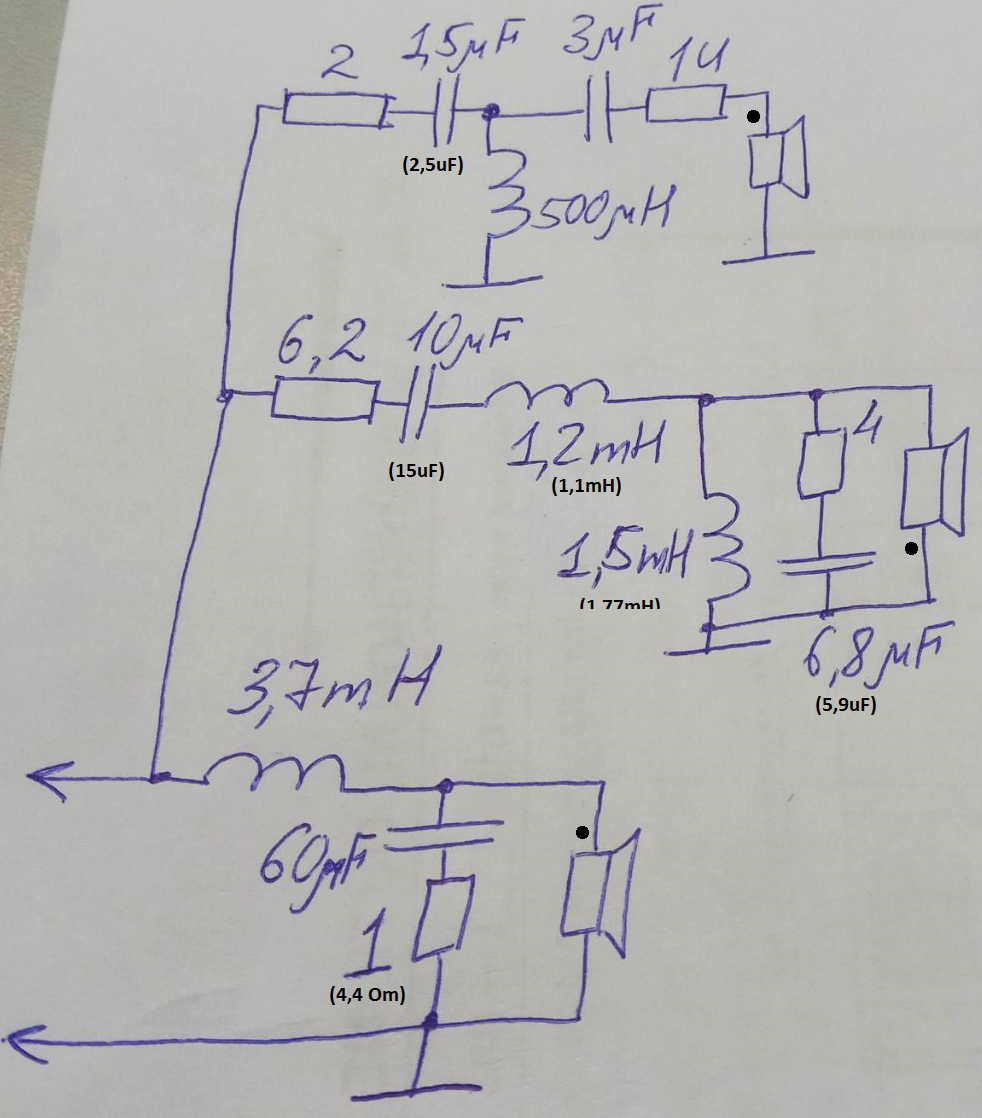 2
1,5μF
3μF
14
(2,5uF)
500μH
6,2
10μF
(15uF)
1,2mH
(1,1mH)
4
1,5mH
(1,77mH)
6,8μF
(5,9uF)
3,7mH
60μF
1
(4,4 Om)